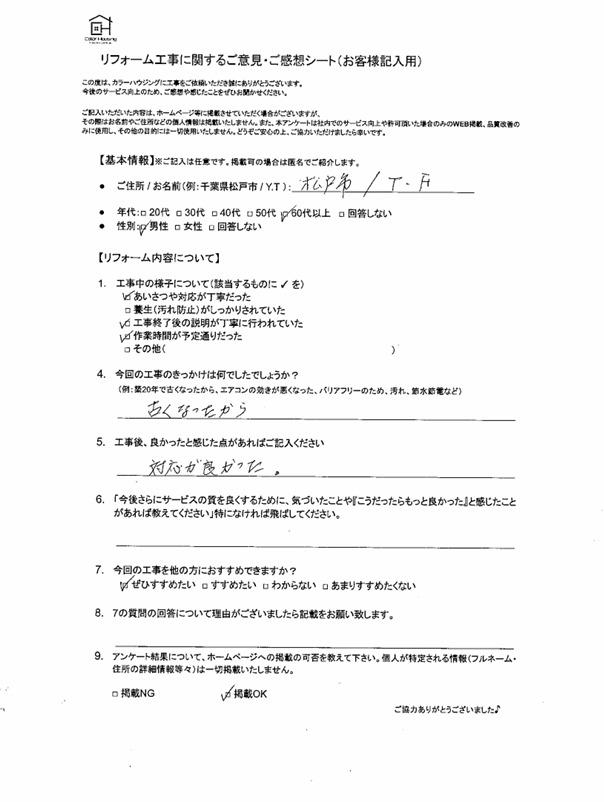 Color Housing
リフォーム工事に関するご意見・ご感想シート(お客様記入用)
この度は、カラーハウジングに工事をご依頼いただき誠にありがとうございます。
今後のサービス向上のため、ご感想や感じたことをぜひお聞かせください。
ご記入いただいた内容は、ホームページ等に掲載させていただく場合がございますが、
その際はお名前やご住所などの個人情報は掲載いたしません。また、本アンケートは社内でのサービス向上や許可頂いた場合のみのWEB掲載、品質改善の
みに使用し、その他の目的には一切使用いたしません。どうぞご安心の上、ご協力いただけましたら幸いです。
【基本情報】※ご記入は任意です。掲載可の場合は匿名でご紹介します。
● ご住所 / お名前(例:千葉県松戸市 / Y.T ): 松戸市 / T・H
● 年代:□ 20代 □ 30代 □ 40代 □ 50代 ☑60代以上 □ 回答しない
● 性別:☑男性 □ 女性 □ 回答しない
【リフォーム内容について】
1. 工事中の様子について(該当するものに ✓ を)
☑あいさつや対応が丁寧だった
□ 養生(汚れ防止)がしっかりされていた
☑工事終了後の説明が丁寧に行われていた
☑作業時間が予定通りだった
□ その他( )
4. 今回の工事のきっかけは何でしたでしょうか?
(例:築20年で古くなったから、エアコンの効きが悪くなった、バリアフリーのため、汚れ、節水節電など)
古くなったから
5. 工事後、良かったと感じた点があればご記入ください
対応が良かった。
6. 「今後さらにサービスの質を良くするために、気づいたことや『こうだったらもっと良かった』と感じたこと
があれば教えてください」特になければ飛ばしてください。
7. 今回の工事を他の方におすすめできますか?
☑ぜひすすめたい □ すすめたい □ わからない □ あまりすすめたくない
8. 7の質問の回答について理由がございましたら記載をお願い致します。
9. アンケート結果について、ホームページへの掲載の可否を教えて下さい。個人が特定される情報(フルネーム・
住所の詳細情報等々)は一切掲載いたしません。
□ 掲載NG ☑掲載OK
ご協力ありがとうございました♪